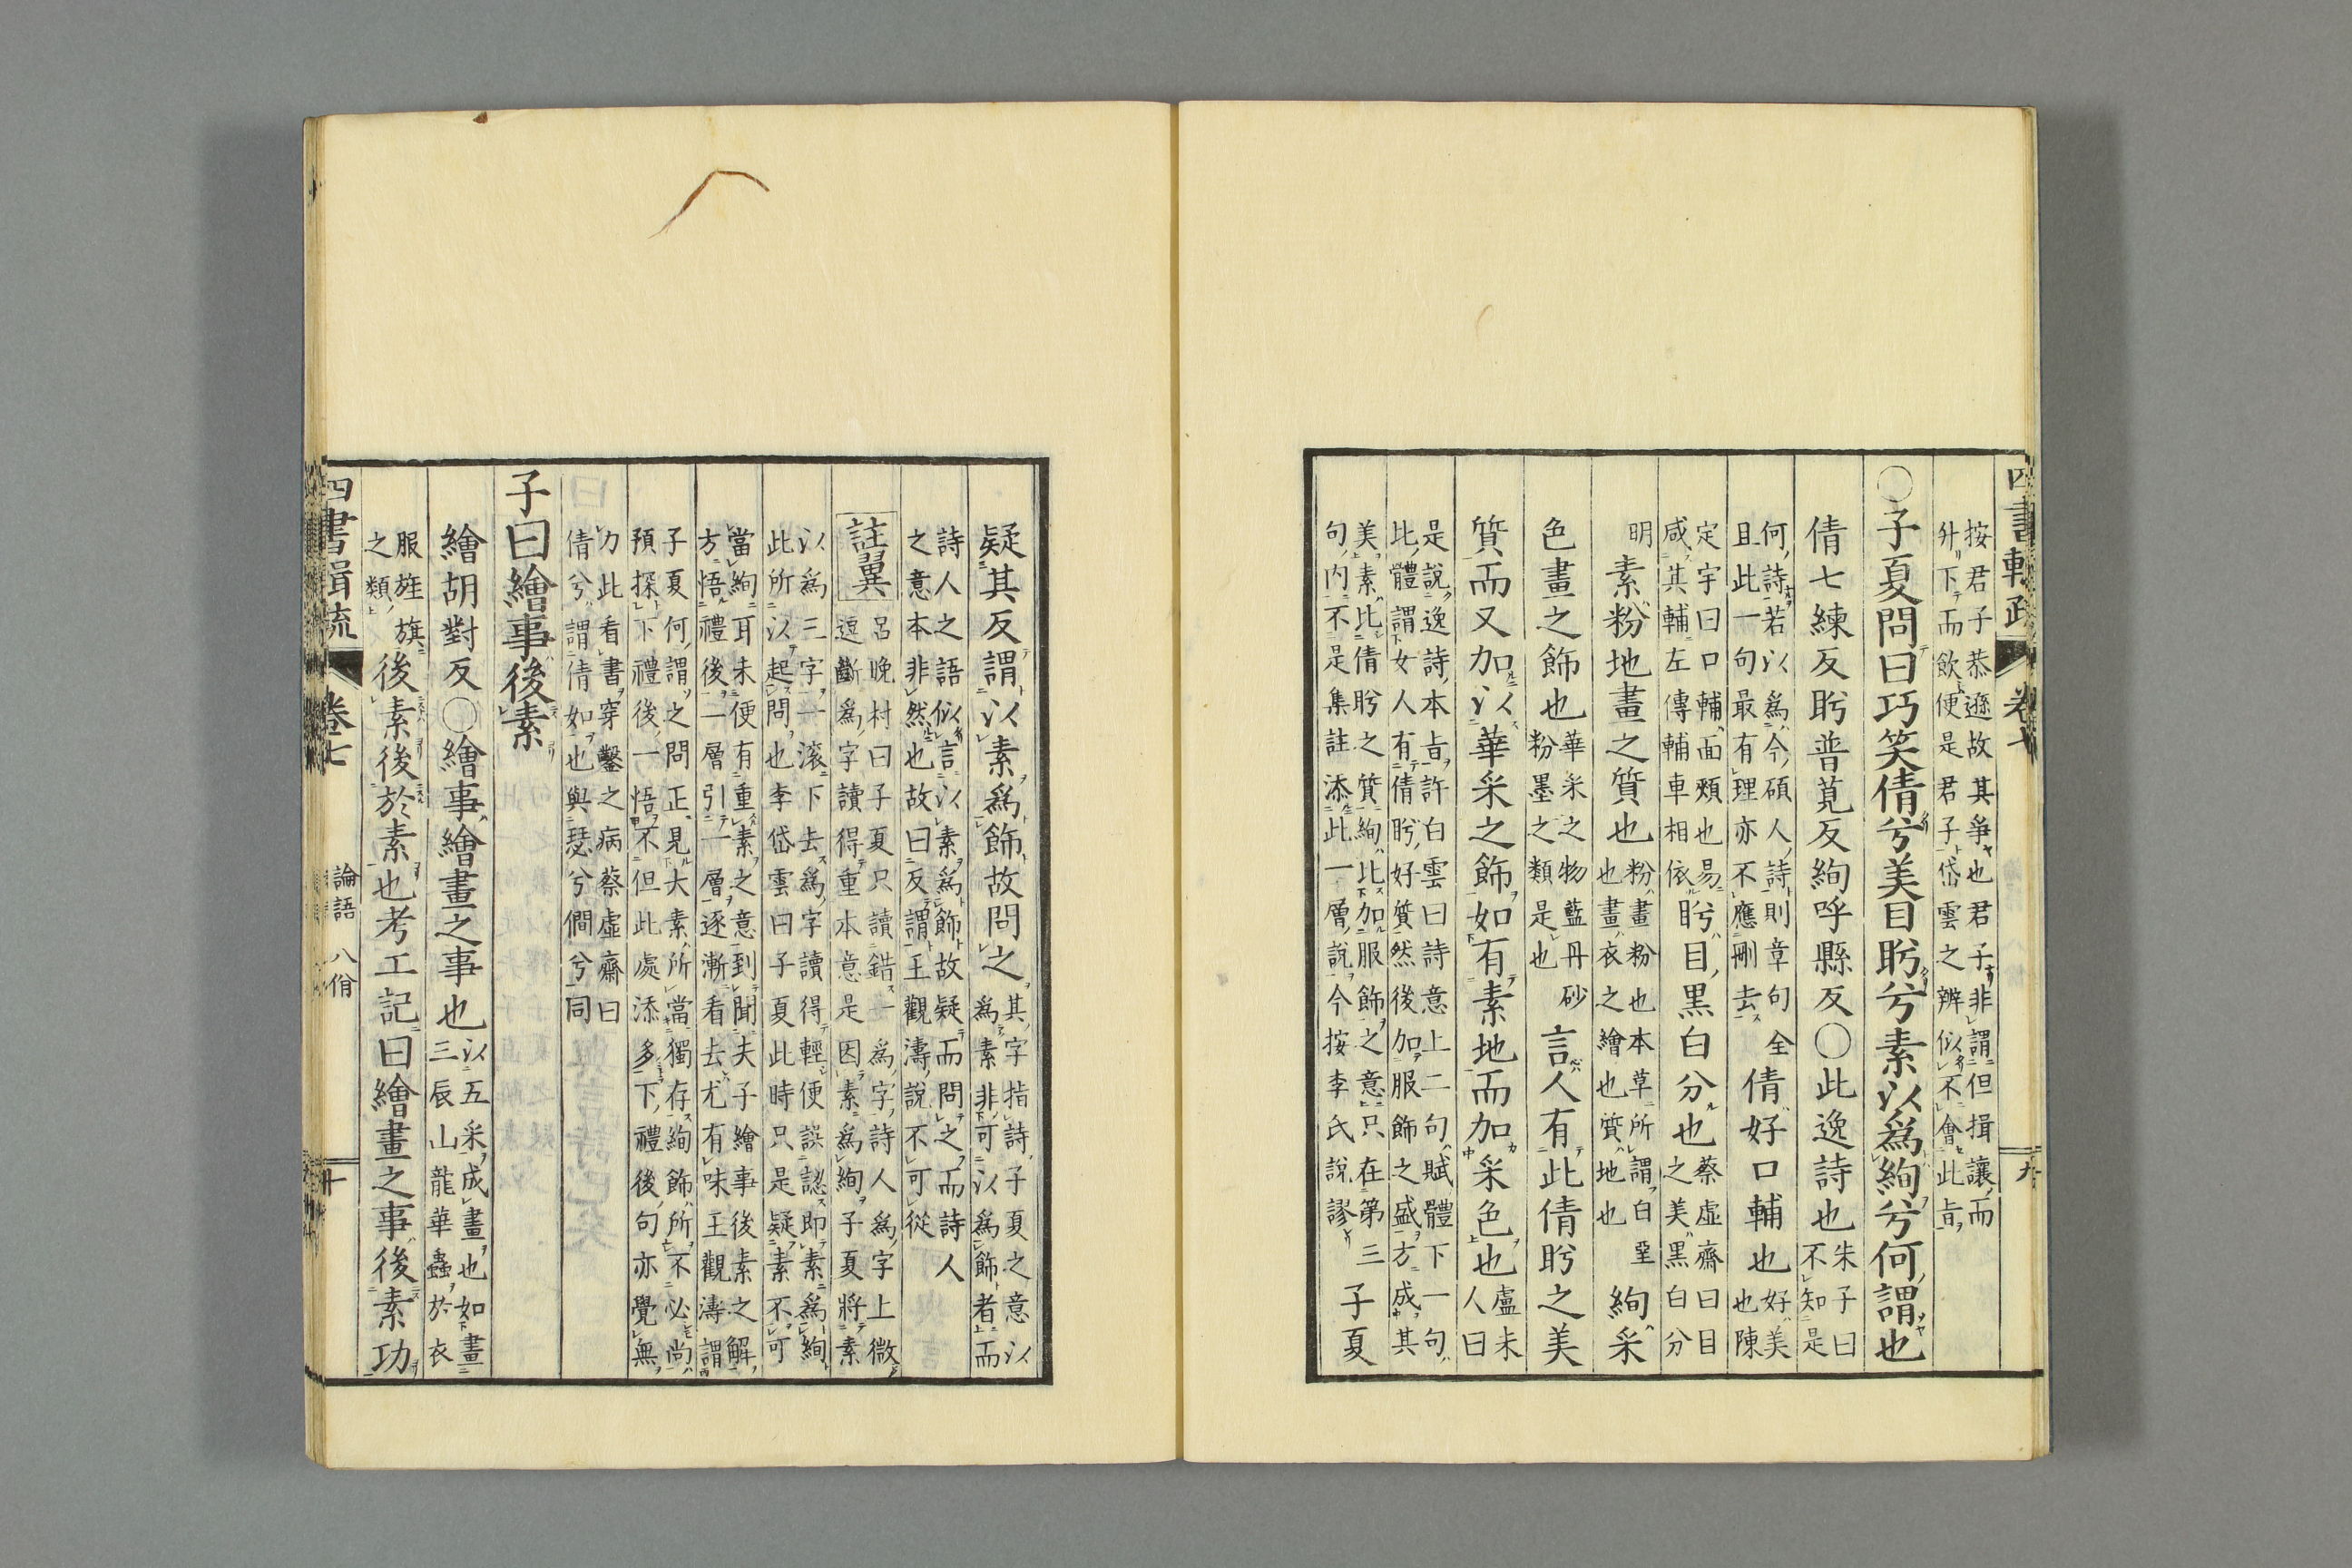 四書輯疏 卷七 九
按君子恭遜故其爭也君子非謂但揖讓而
升下而飲便是君子岱雲之辨似不會此旨
○子夏問曰巧笑倩兮美目盻兮素以爲絢兮何謂也
倩七練反盻普莧反絢呼縣反○此逸詩也朱子曰不知是
何詩若以爲今碩人詩則章句全且此一句最有理亦不應刪去倩好口輔也好美也陳
定宇曰口輔面頰也易咸其輔左傳輔車相依盻目黑白分也蔡虛齋曰目之美黑白分
明素粉地畫之質也粉畫粉也本草所謂白堊也畫衣之繪也質地也絢采
色畫之飾也華采之物藍丹砂粉墨之類是也言人有此倩盻之美
質而又加以華采之飾如有素地而加采色也盧未人曰
是說逸詩本旨許白雲曰詩意上二句賦體下一句
比體謂女人有倩盻好質然後加服飾之盛方成其
美素比倩盻之質絢比加服飾之意只在第三句內不是集註添此一層說今按李氏說謬子夏
疑其反謂以素爲飾故問之其字指詩子夏之意以爲素非可以爲飾者而
詩人之語似言以素爲飾故疑而問之而詩人
之意本非然也故曰反謂王觀濤說不可從
註翼呂晚村曰子夏只讀錯一爲字詩人爲字上微逗斷爲字讀得重本意是因素爲絢子夏將素
以爲三字一滚下去爲字讀得輕便誤認即素爲絢
此所以起問也李岱雲曰子夏此時只是疑素不可
當絢耳未便有重素之意到聞夫子繪事後素之解
方悟禮後一層引一層逐漸看去尤有味王觀濤謂
子夏何謂之問正見大素所當獨存絢飾所不必尚
預探下禮後一悟不但此處添多下禮後句亦覺無
力此看書穿鑿之病蔡虛齋曰
倩兮謂倩如也與瑟兮僩兮同
子曰繪事後素
繪胡對反○繪事繪畫之事也以五采成畫也如畫三辰山龍華蟲於衣
服旌旗之類後素後於素也考工記曰繪畫之事後素功
四書輯疏 卷七 論語 八佾 十